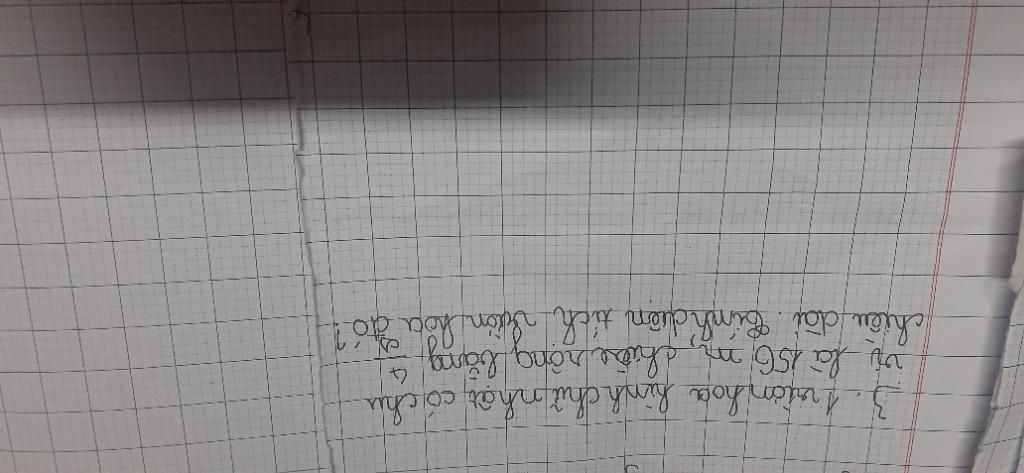 3. 1 vườn hoa hình chữ nhật có chu
vi là 156 m, chiều rộng bằng 4/9
chiều dài. Tính diện tích vườn hoa đó?